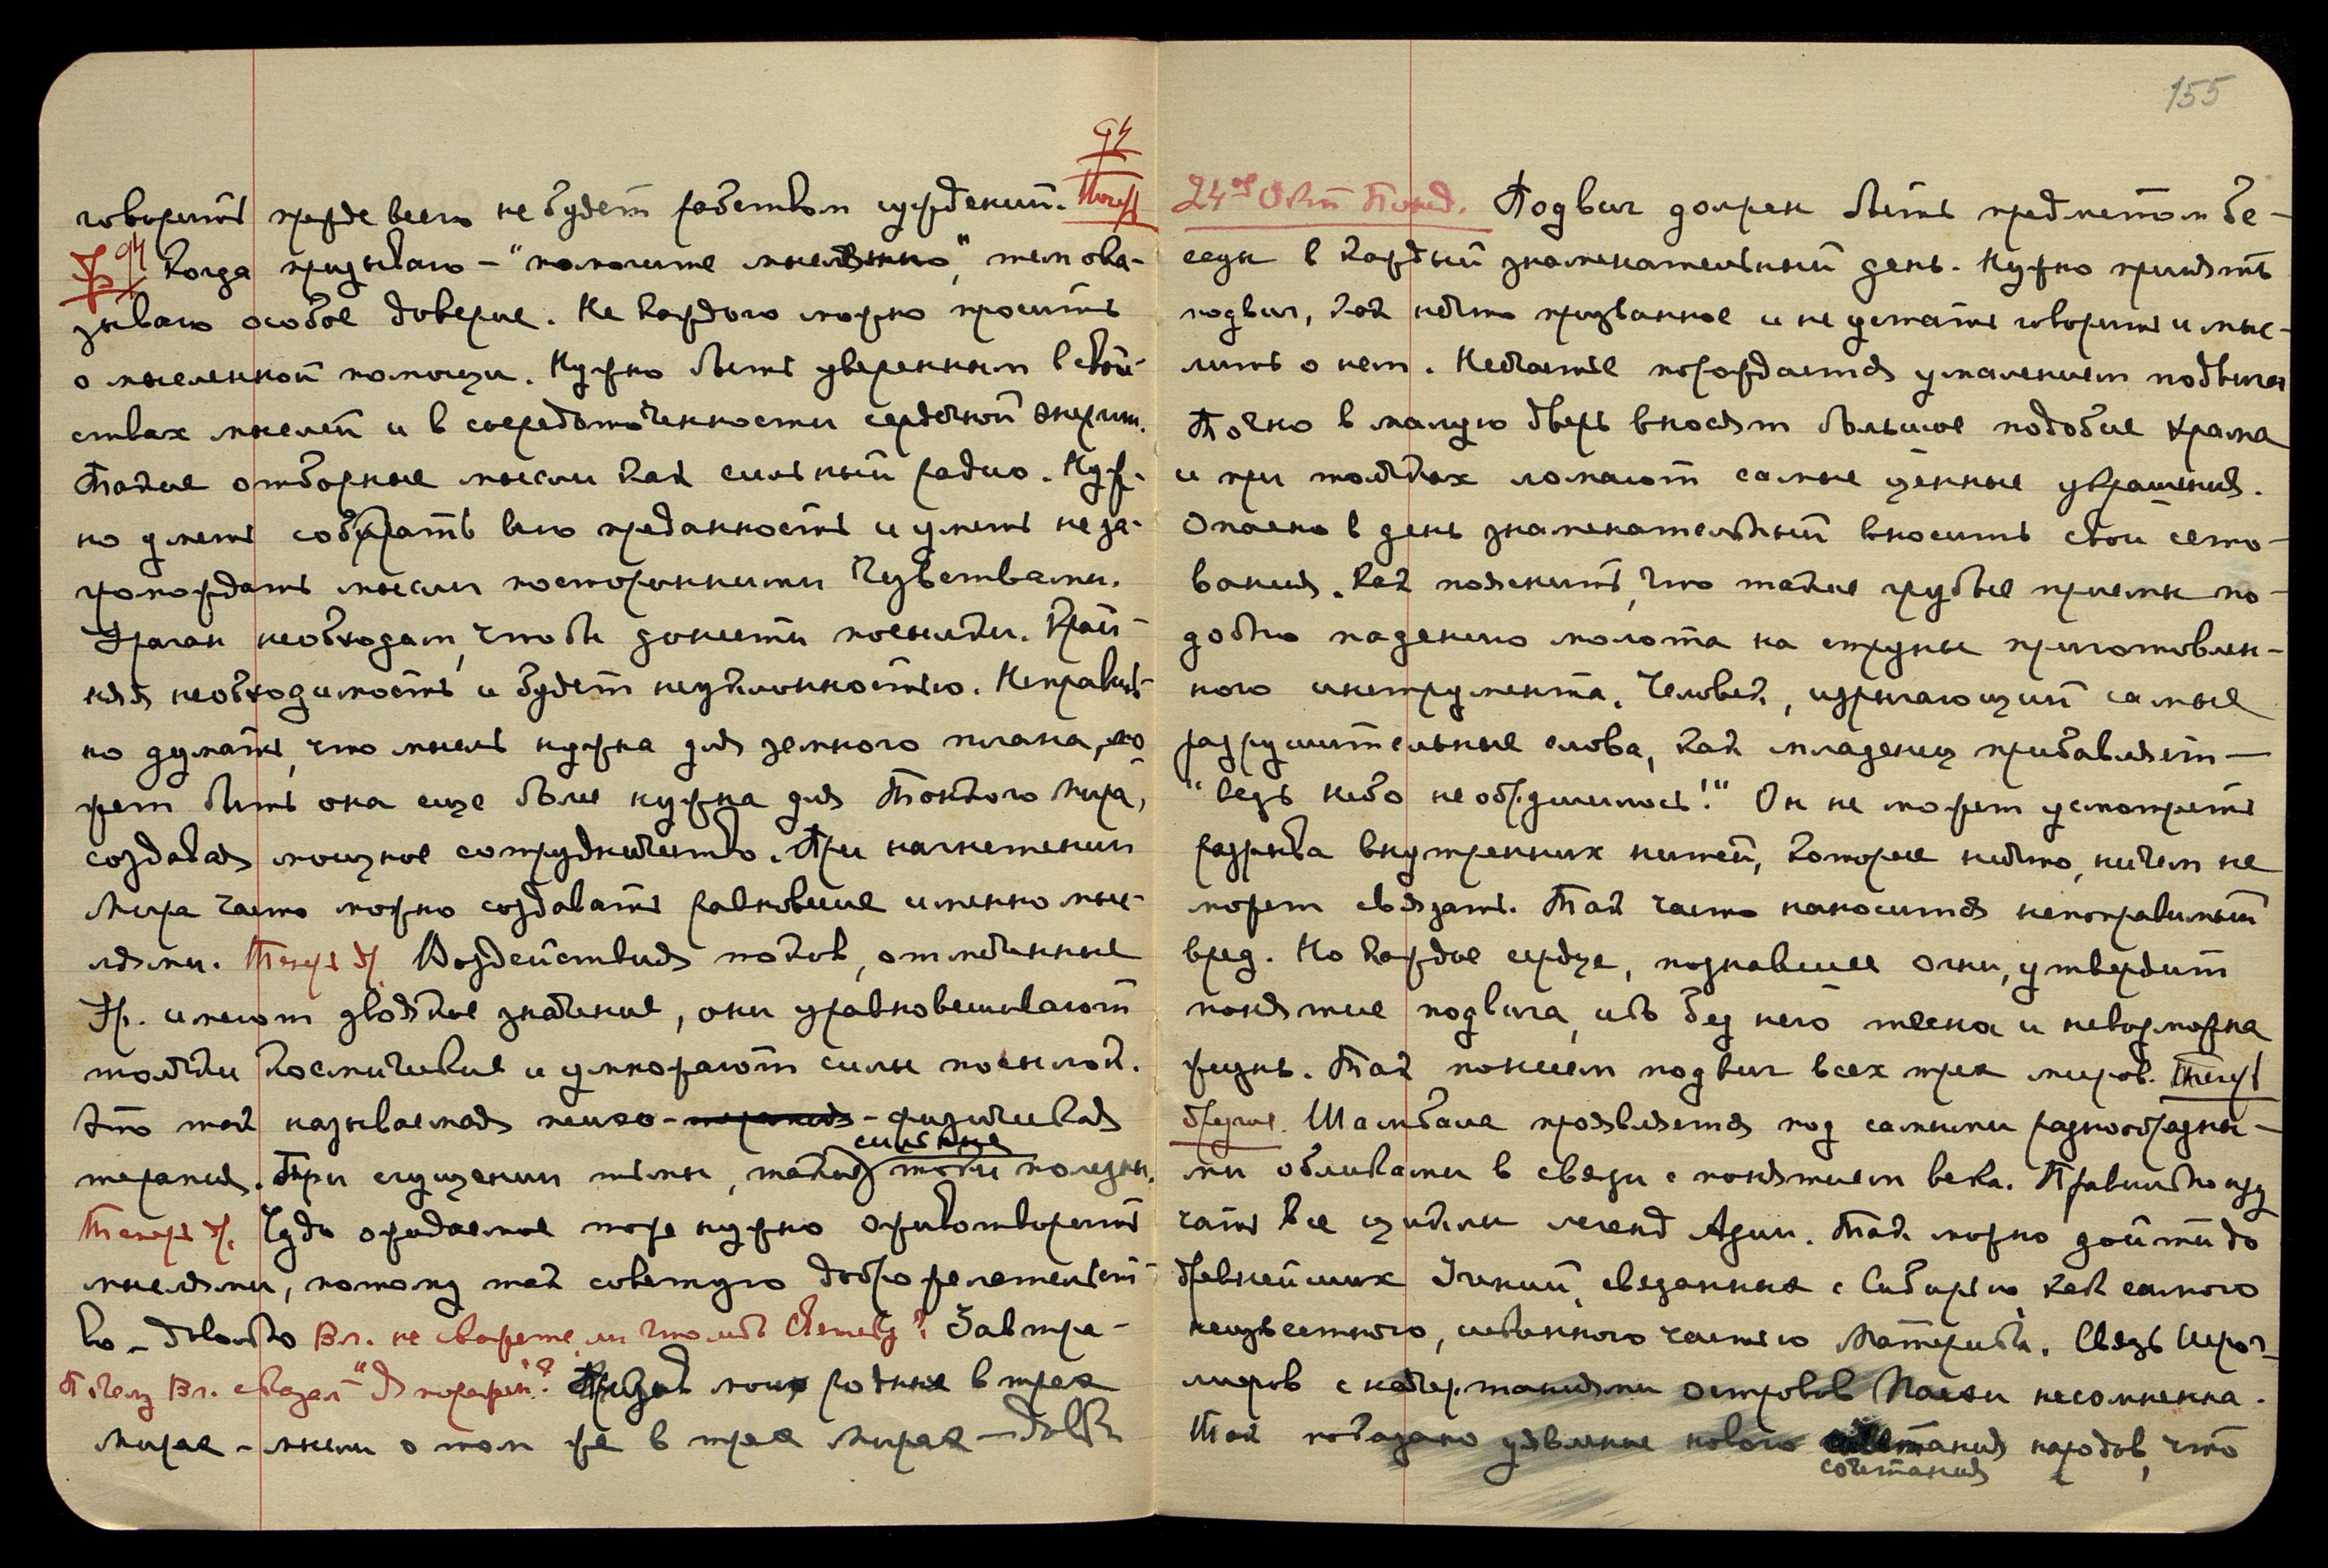 говорить прежде всего не будет рабством суждений. Теперь
Ур. Когда призываю – "помогите мысленно", тем ока-
зываю особое доверие. Не каждого можно просить
о мысленной помощи. Нужно быть уверенным в свой-
ствах мыслей и в сосредоточенности сердечной энергии.
Такие отборные мысли как сильный радио. Нуж-
но уметь собрать всю преданность и уметь не за-
громождать мысли посторонними чувствами.
Ураган необходим, чтобы донести посылки. Край-
няя необходимость и будет неуклонностью. Неправиль-
но думать, что мысль нужна для земного плана, мо
жет быть она еще более нужна для Тонкого Мира,
создавая мощное сотрудничество. При нагнетении
Мира часто можно создавать равновесие именно мыс-
лями. Теперь др. Воздействия токов, отмеченные
Ур. имеют двоякое значение, они уравновешивают
толчки космические и умножают силы посылок.
Это так называемая психо-терапия-физическая
сильные
терапия. При сгущении тьмы, такие токи полезны.
Теперь др. Чудо ожидаемое тоже нужно оживотворить
мыслями, потому так советую доброжелательст-
во – довольно Вл. не скажете ли что-либо Светику? Завтра –
Почему Вл. сказал "Я поражен"? Приказ моих родных в трех
мирах – мысли о том же в трех Мирах – довольно
155
24ое Окт Понед. Подвиг должен быть предметом бе-
седы в каждый знаменательный день. Нужно принять
подвиг, как нечто призванное и не устать говорить и мыс-
лить о нем. Несчастье порождается умалением подвига
Точно в малую дверь вносят большое подобие Храма
и при толчках ломают самые ценные украшения.
Опасно в день знаменательный вносить свои сето-
вания. Как пояснить, что такие грубые приемы по-
добно падению молота на струны приготовлен-
ного инструмента. Человек, изрыгающий самые
разрушительные слова, как младенец прибавляет –
"ведь небо не обрушилось!" Он не может усмотреть
разрыва внутренних нитей, которые никто, ничем не
может связать. Так часто наносится непоправимый
вред. Но каждое сердце, познавшее огни, утвердит
понятие подвига, ибо без него тесна и невозможна
жизнь. Так поймем подвиг всех трех миров. Теперь
другие. Шамбала проявляется под самыми разнообразны-
ми обликами в связи с понятием века. Правильно изу
чать все циклы легенд Азии. Так можно дойти до
древнейших Учений, связанных с Сибирью как самого
неизвестного, исконного частью Материка. Связь Иерог-
лифов с начертаниями островов Пасхи несомненна.
Так показано уявление нового сочетания народов, что
сочетания